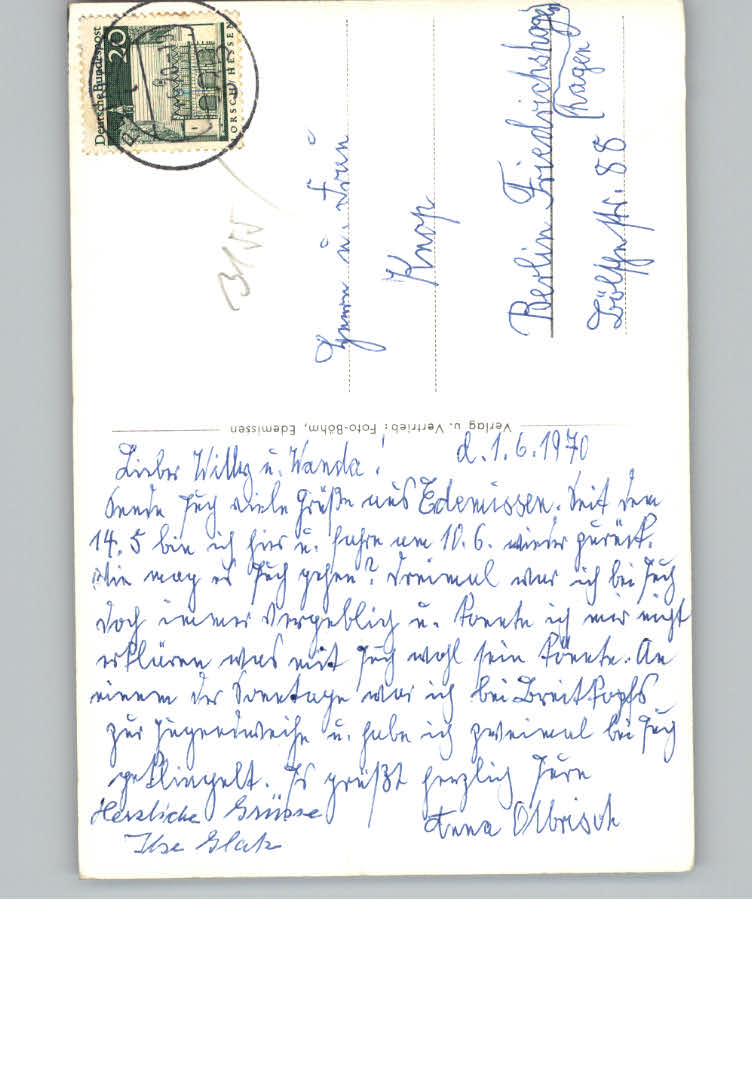 Deutsche Bundespost
20
LORSCH / HESSEN
Herrn u. Frau
Knop
Berlin Friedrichshagen
hagen
Bölschestr. 88
Verlag u. Vertrieb: Foto-Böhm, Edemissen
d. 1.6.1970
Lieber Willy u. Wanda!
Sende Euch viele Grüße aus Edemissen. Seit dem
14.5 bin ich hier u. fahre am 10.6. wieder zurück.
Wie mag es Euch gehen? Dreimal war ich bei Euch
doch immer vergeblich u. konnte ich mir nicht
erklären was mit Euch wohl sein könnte. An
einem der Sonntage war ich bei Breitkopfs
zur Jugendweihe u. habe ich zweimal bei Euch
geklingelt. Es grüßt herzlich Eure
Anna Olbrisch
Herzliche Grüsse
Ilse Glatz